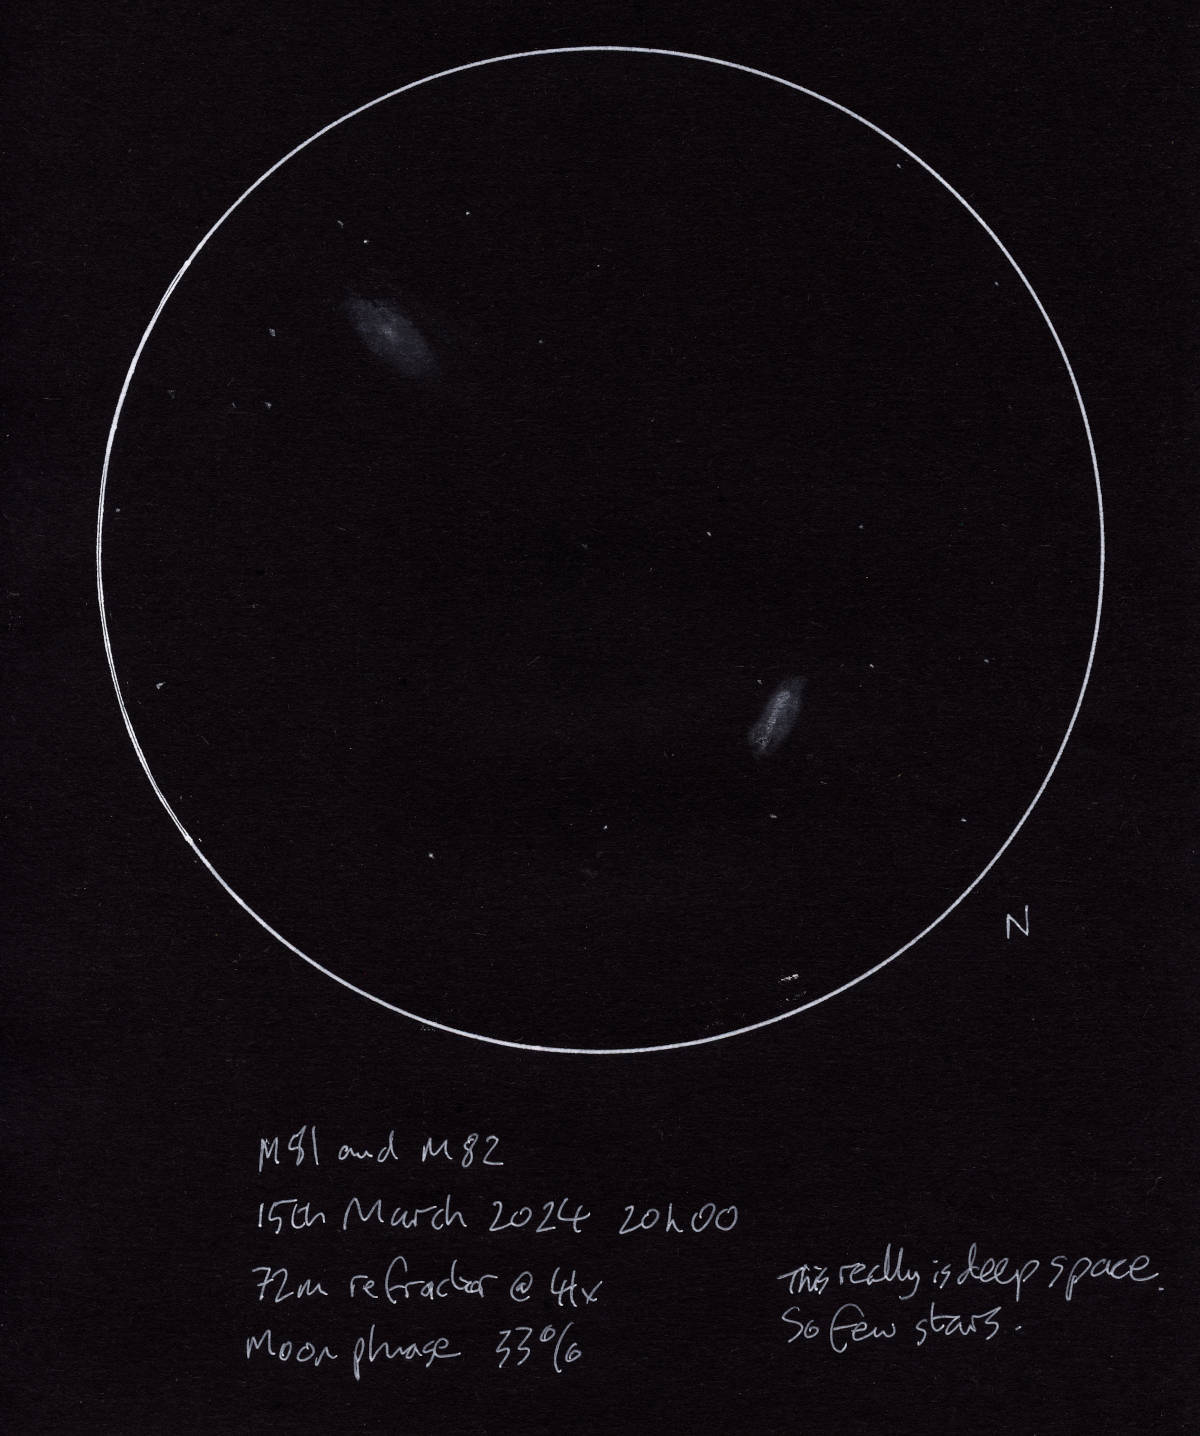 N
M81 and M82
15th March 2024 20h00
72m refractor @ 41x
Moon phase 33%
This really is deep space.
So few stars.